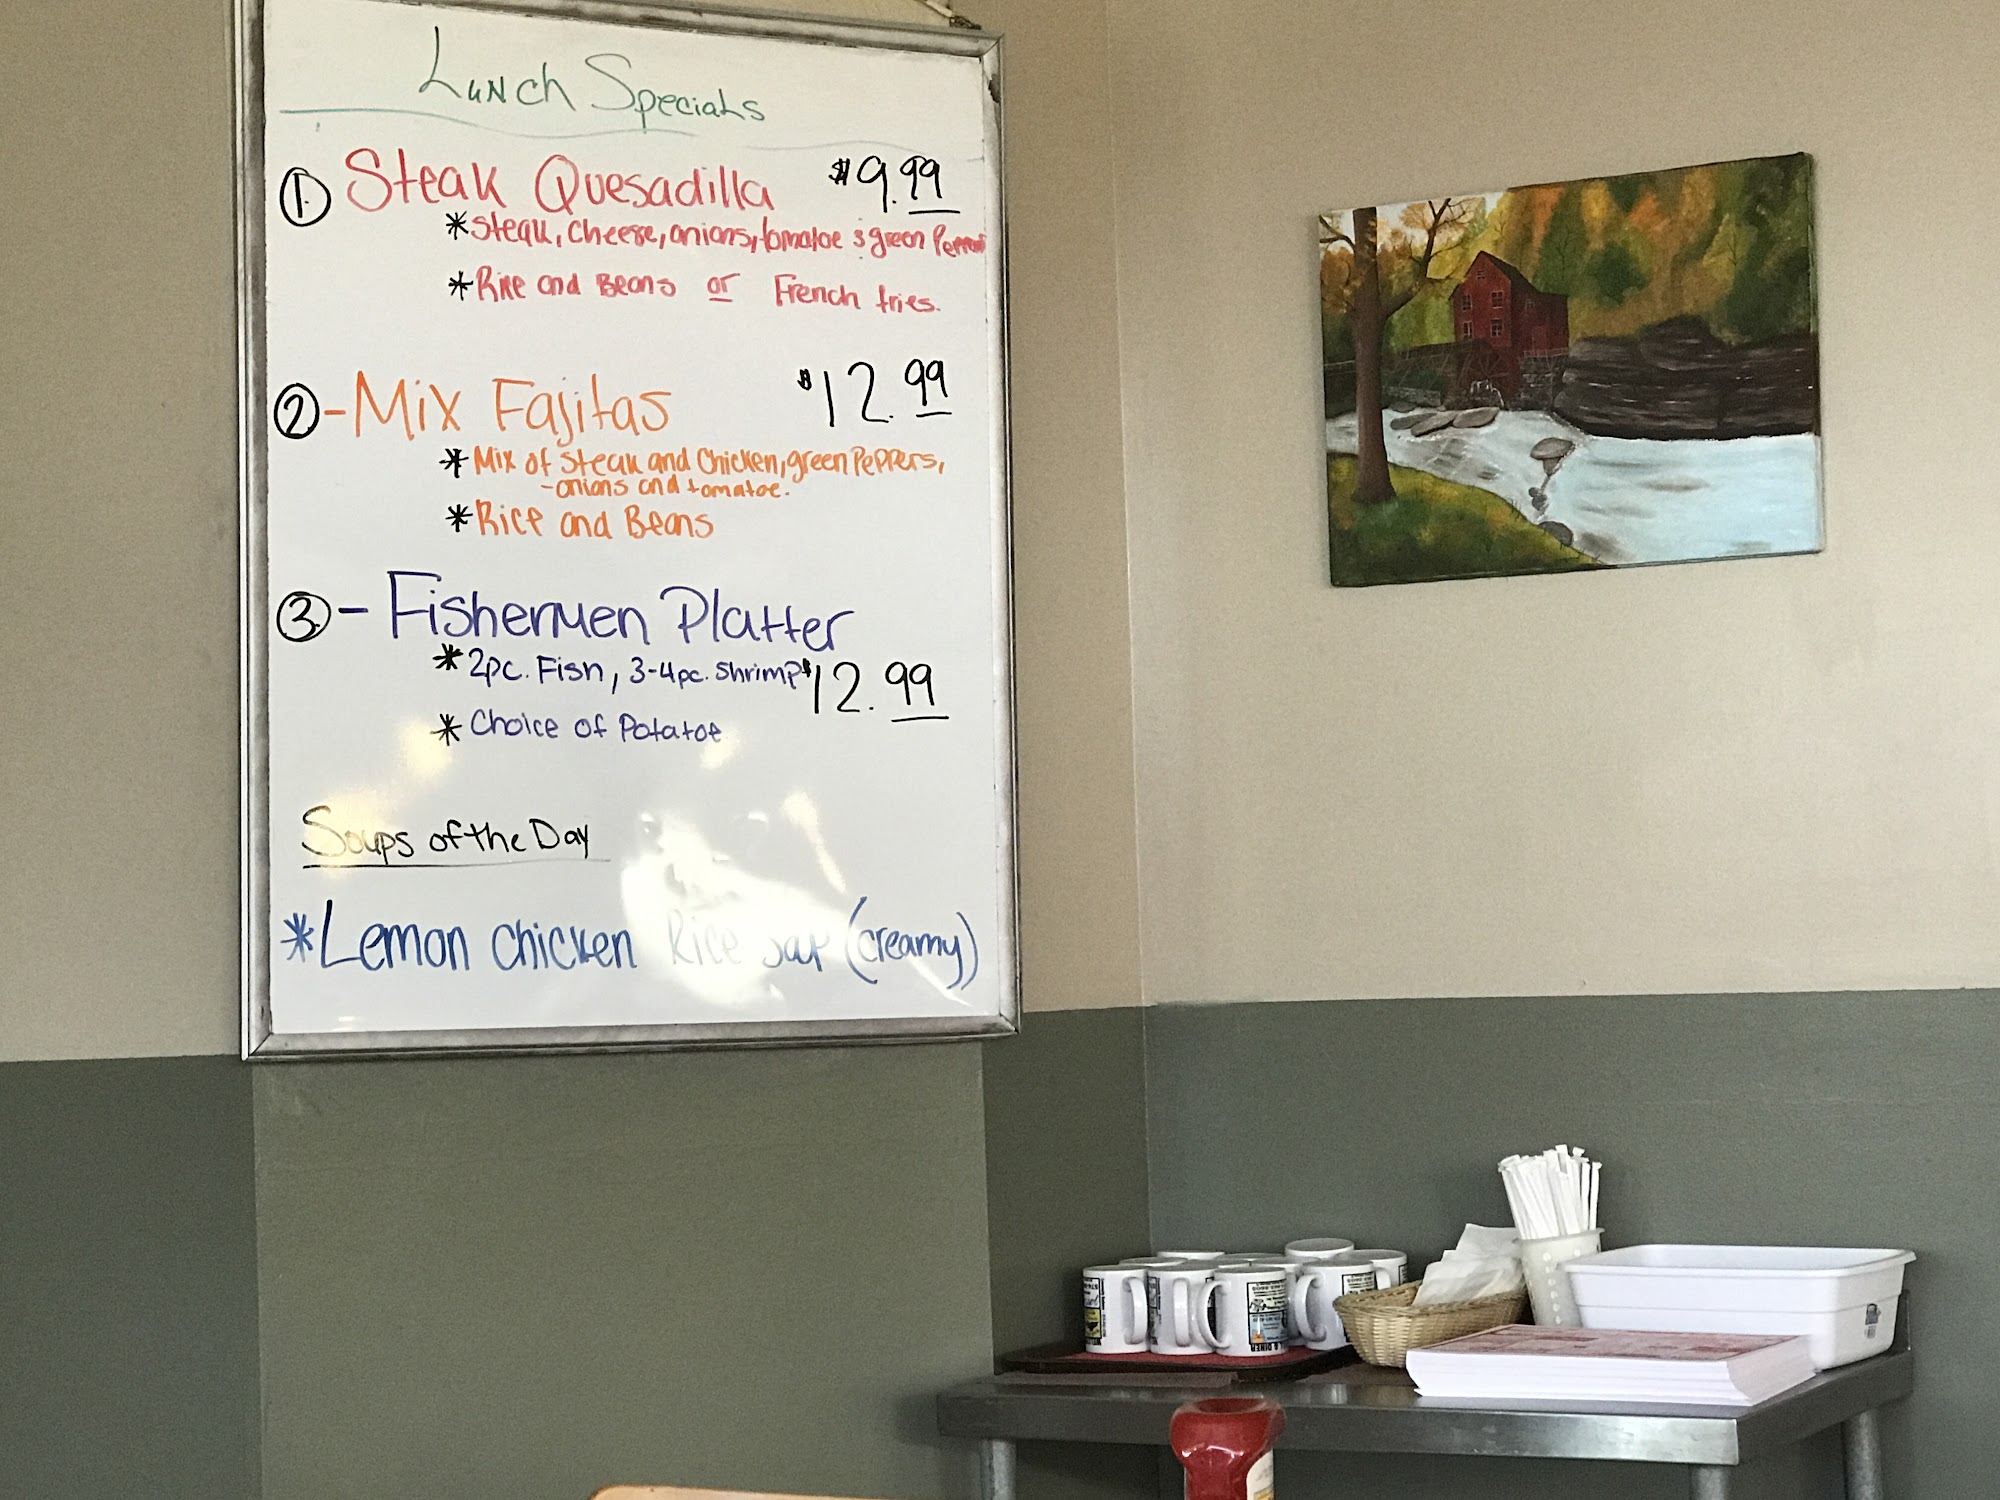 Lunch Specials
1. Steak Quesadilla $9.99
*Steak, cheese, onions, tomatoe & green Peppers
*Rice and Beans or French fries.
2 - Mix Fajitas $12.99
*Mix of steak and chicken, green Peppers,
-onions and tomatoe.
*Rice and Beans
3. - Fishermen Platter
*2pc. Fish, 3-4pc. shrimp $12.99
*Choice of Potatoe
Soups of the Day
*Lemon chicken Rice Soup (creamy)
DINER